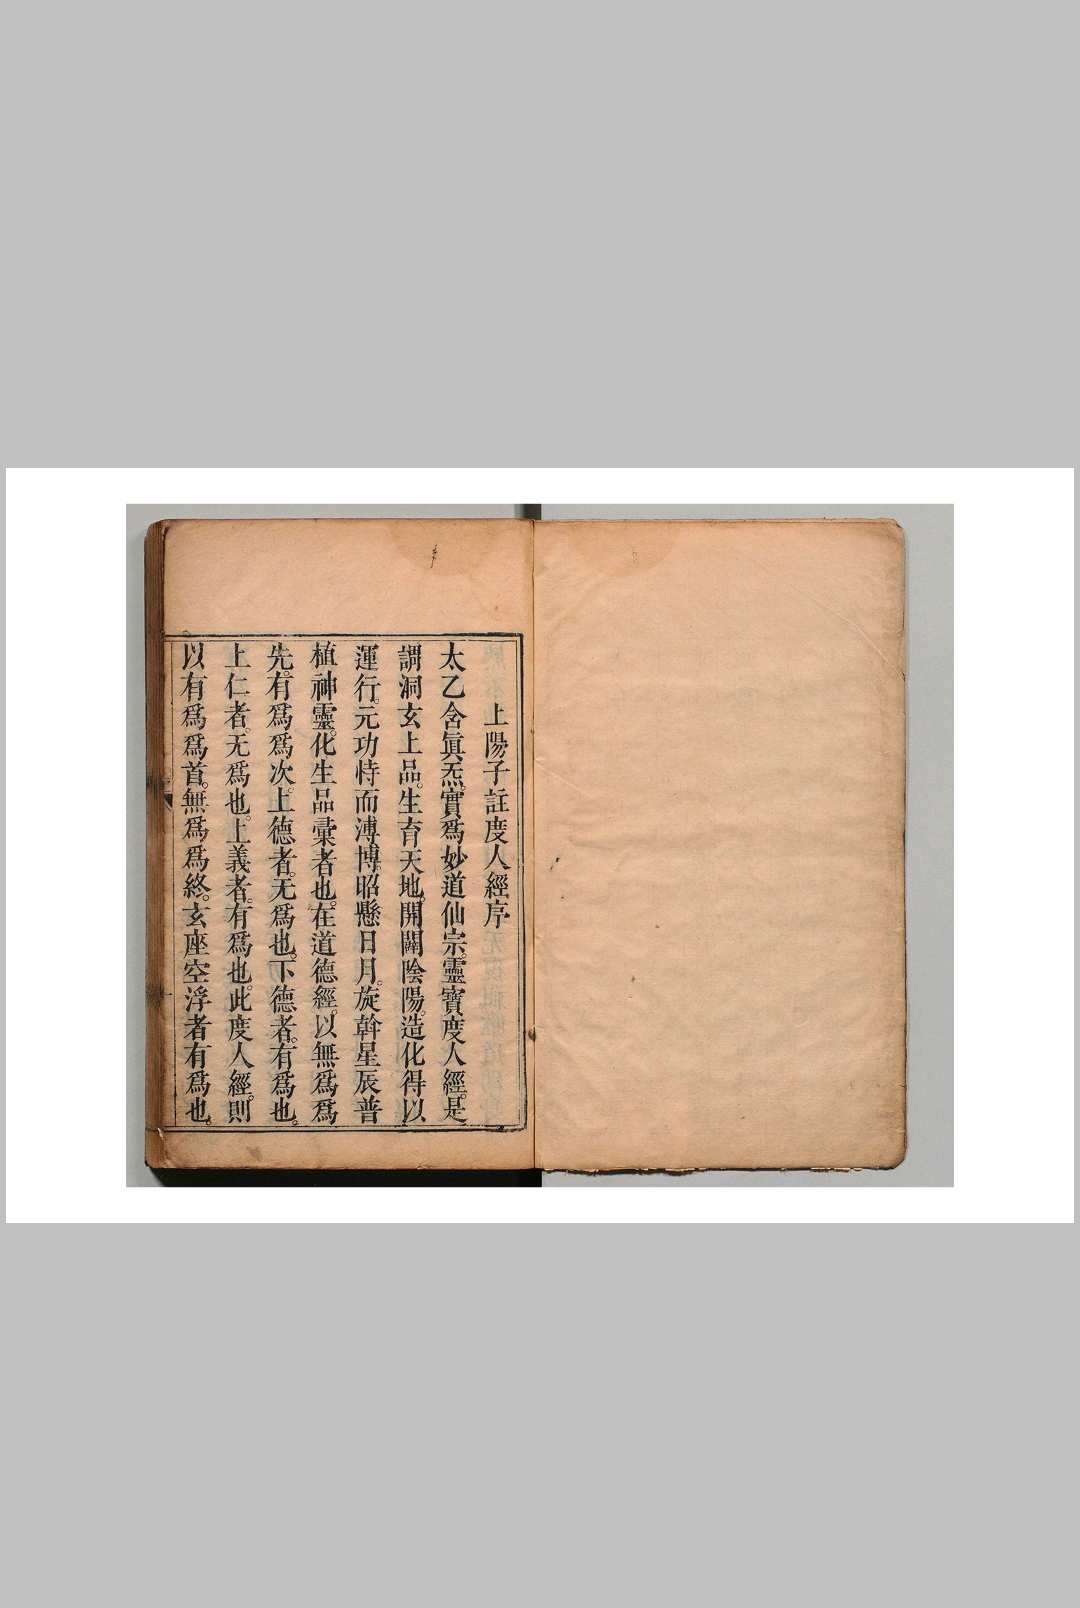 上陽子註度人經序
太乙含眞炁。實爲妙道仙宗。靈寶度人經。是
謂洞玄上品。生育天地。開闢陰陽。造化得以
運行。元功恃而溥博。昭懸日月。旋斡星辰普
植神靈。化生品彙者也。在道德經。以無爲爲
先。有爲爲次。上德者。无爲也。下德者。有爲也。
上仁者。无爲也。上義者。有爲也。此度人經。則
以有爲爲首。無爲爲終。玄座空浮者有爲也。